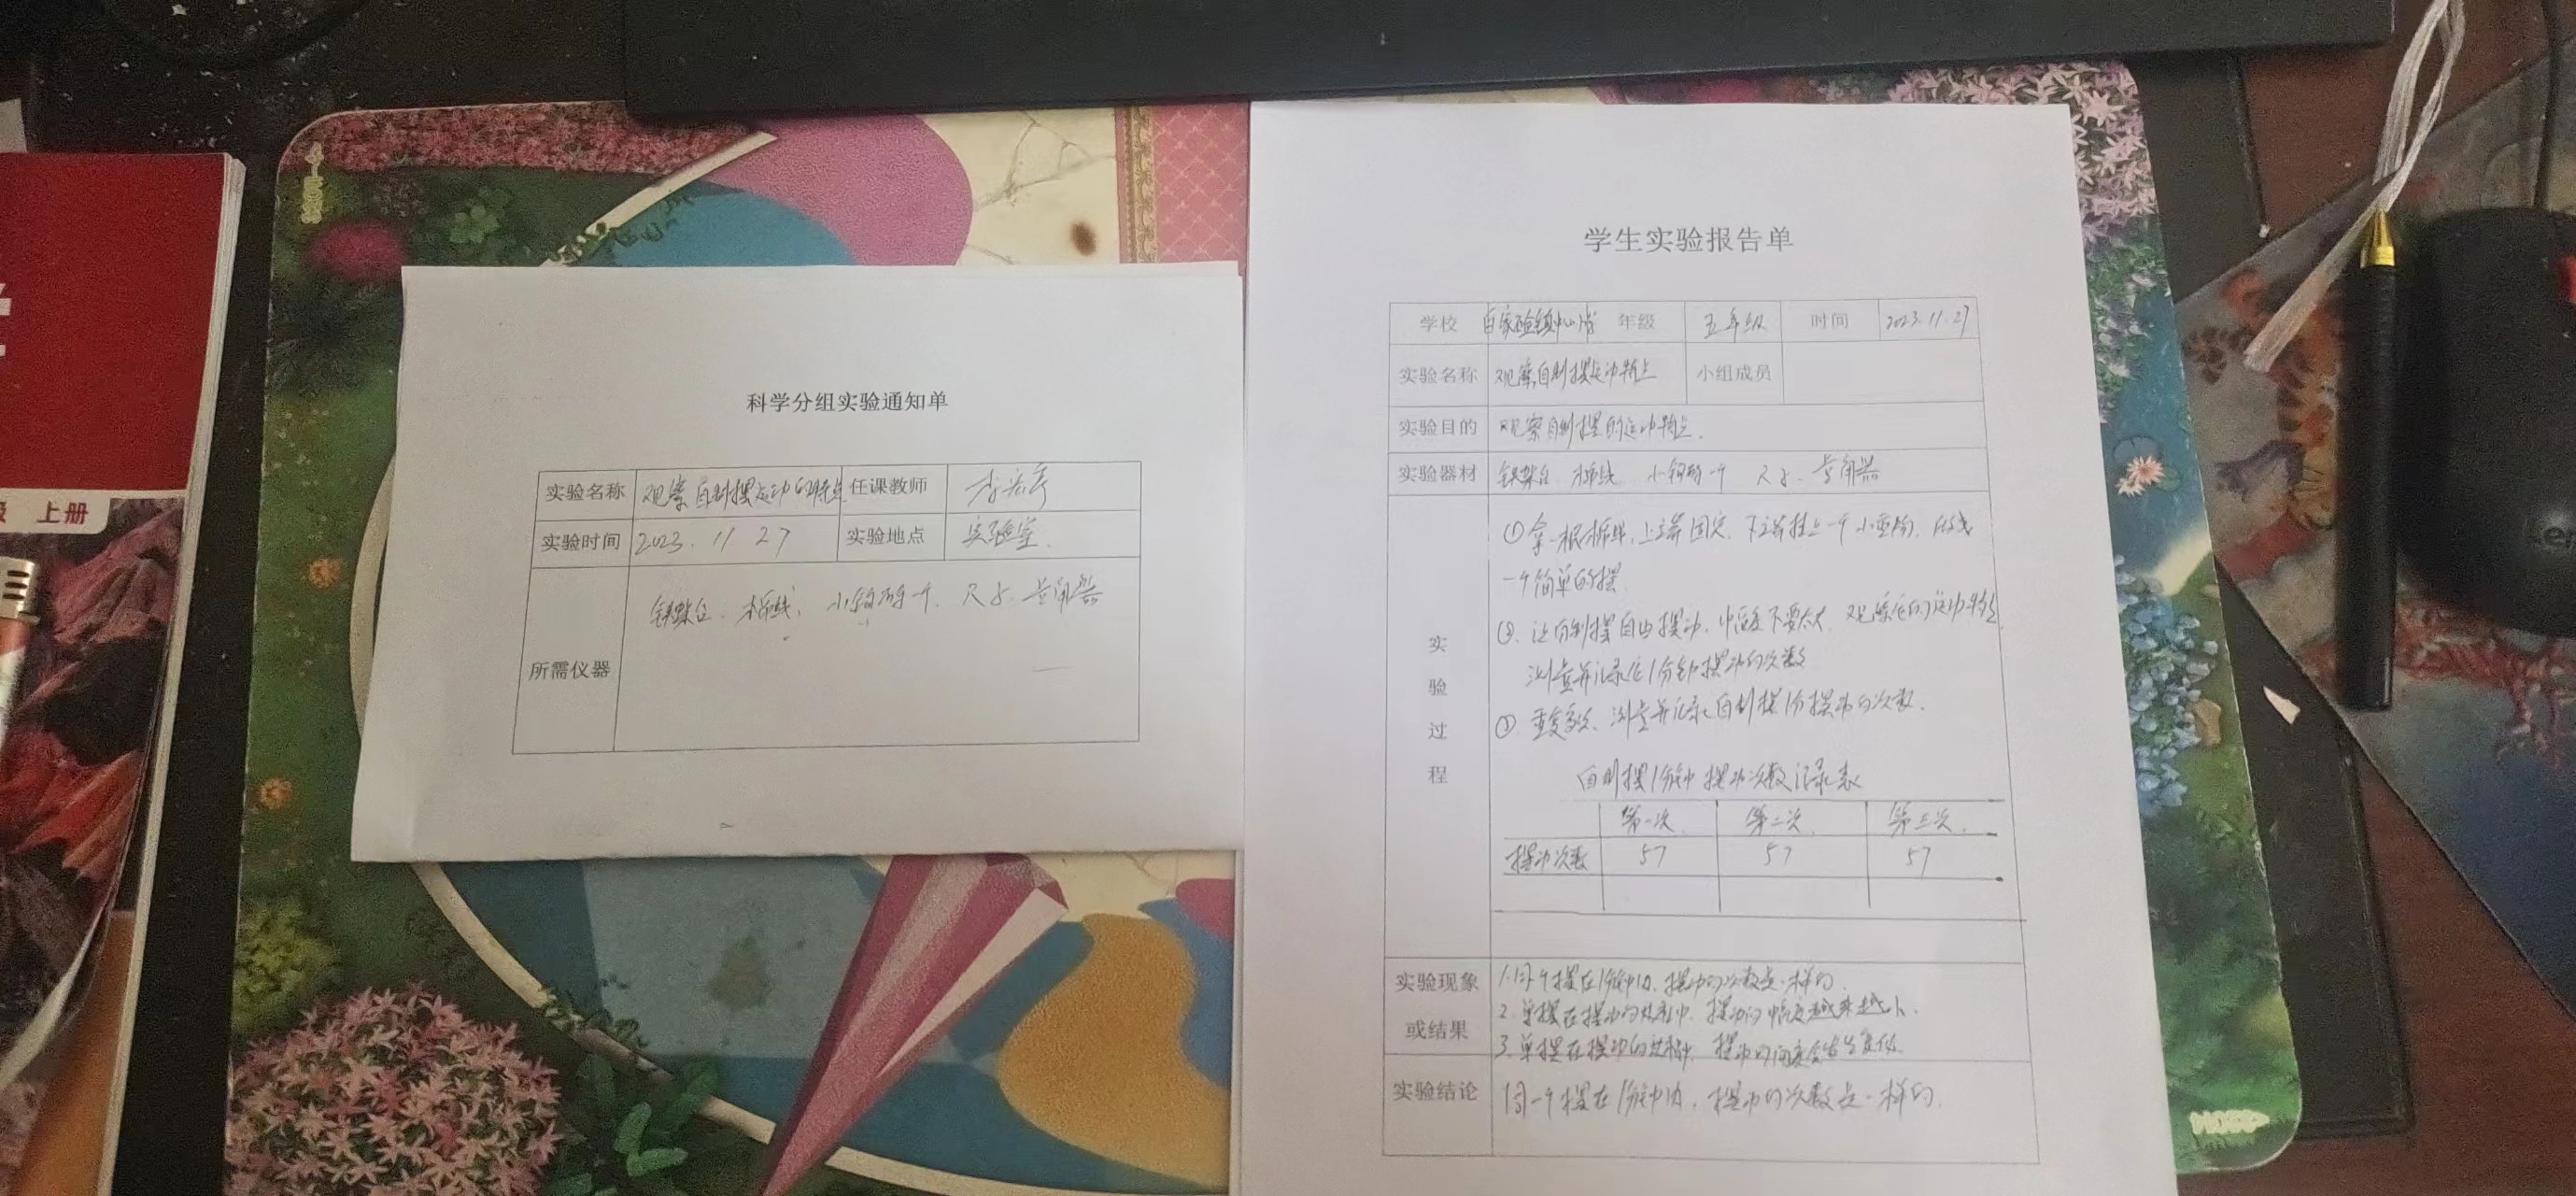 上册
科学分组实验通知单
实验名称 观察自制摆运动的特点 任课教师
实验时间 2023.11 27 实验地点 实验室.
所需仪器 铁架台、棉线、小钩码一个、尺子、量角器
学生实验报告单
学校 年级 五年级 时间 2023.11.27
实验名称 观察自制摆运动特点 小组成员
实验目的 观察自制摆的运动特点.
实验器材 铁架台 棉线 小钩码一个 尺子、量角器
实验过程
①拿一根棉线,上端固定,下端挂上一个小重物,做成
一个简单的摆.
②、让自制摆自由摆动,幅度不要太大,观察它的运动特点,
测量并记录它1分钟摆动的次数
③、重复多次、测量并记录自制摆1分摆动的次数.
自制摆1分钟摆动次数记录表
第一次. 第二次. 第三次.
摆动次数 57 57 57
实验现象或结果
1.同一个摆在1分钟内,摆动的次数是一样的.
2.单摆在摆动的过程中,摆动的幅度越来越小.
3.单摆在摆动的过程中,摆动的
实验结论 同一个摆在1分钟内,摆动的次数是一样的.